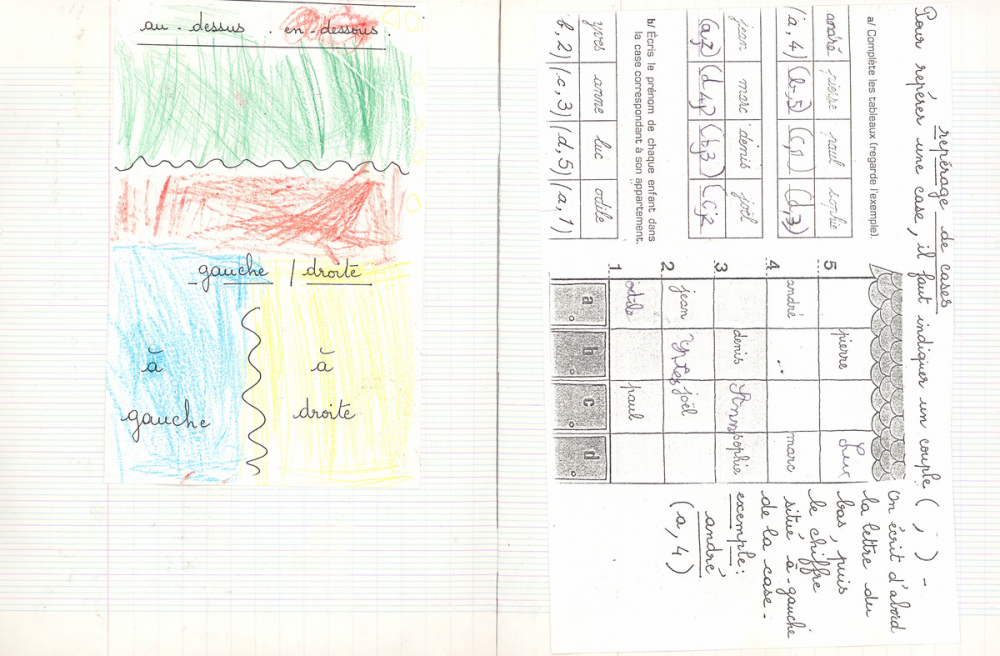 au-dessus . en-dessous.
gauche / droite
à
gauche
à
droite
repérage de cases
Pour repérer une case, il faut indiquer un couple ( , ) -
On écrit d'abord
la lettre du
bas, puis
le chiffre
situé à gauche
de la case.
exemple:
andré
(a, 4)
a/ Complète les tableaux (regarde l'exemple).
andré pierre paul sophie
(a, 4) (b,5) (c,1) (d,3)
jean marc denis joël
(a,2) (d,4) (b,3) (c,2)
b/ Écris le prénom de chaque enfant dans
la case correspondant à son appartement.
yves anne luc odile
b, 2) (c, 3) (d, 5) (a, 1)
5 pierre Luc
4 andré marc
3 denis Ann sophie
2 jean joël
1 odile paul
a b c d